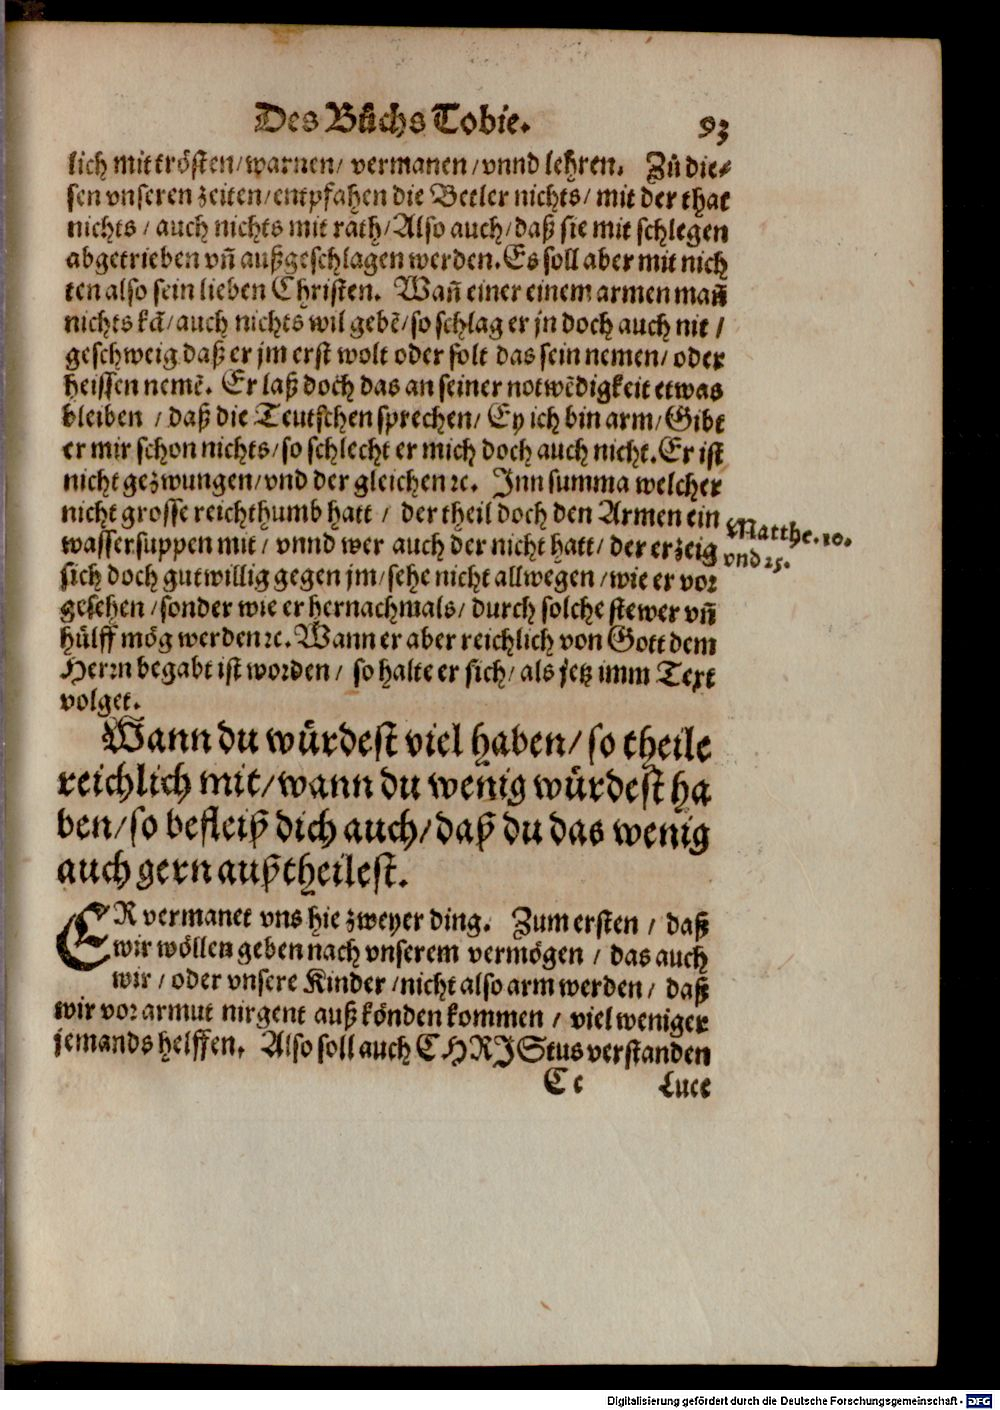 Des Bůchs Tobie. 93
lich mit trösten/ warnen/ vermanen/ vnnd lehren. Zů die-
sen vnseren zeiten/ entpfahen die Betler nichts/ mit der that
nichts/ auch nichts mit rath/ Also auch/ daß sie mit schlegen
abgetrieben vñ außgeschlagen werden. Es soll aber mit nich
ten also sein lieben Christen. Wañ einer einem armen mañ
nichts kã/ auch nichts wil gebẽ/ so schlag er jn doch auch nit/
geschweig daß er jm erst wolt oder solt das sein nemen/ oder
heissen nemẽ. Er laß doch das an seiner notwẽdigkeit etwas
bleiben/ daß die Teutschen sprechen/ Ey ich bin arm/ Gibt
er mir schon nichts/ so schlecht er mich doch auch nicht. Er ist
nicht gezwungen/ vnd der gleichen ꝛc. Inn summa welcher
nicht grosse reichthumb hatt/ der theil doch den Armen ein
Matthe. 10.
wassersuppen mit/ vnnd wer auch der nicht hatt/ der erzeig
vnd 25.
sich doch gutwillig gegen jm/ sehe nicht allwegen/ wie er vor
gesehen/ sonder wie er hernachmals/ durch solche stewer vñ
hülff mög werden ꝛc. Wann er aber reichlich von Gott dem
Herrn begabt ist worden/ so halte er sich/ als jetz imm Text
volget.
Wann du würdest viel haben/ so theile
reichlich mit/ wann du wenig würdest ha
ben/ so befleiß dich auch/ daß du das wenig
auch gern außtheilest.
ER vermanet vns hie zweyer ding. Zum ersten/ daß
wir wöllen geben nach vnserem vermögen/ das auch
wir/ oder vnsere Kinder/ nicht also arm werden/ daß
wir vor armut nirgent auß könden kommen/ viel weniger
jemands helffen. Also soll auch CHRIStus verstanden
Cc Luce
Digitalisierung gefördert durch die Deutsche Forschungsgemeinschaft - DFG